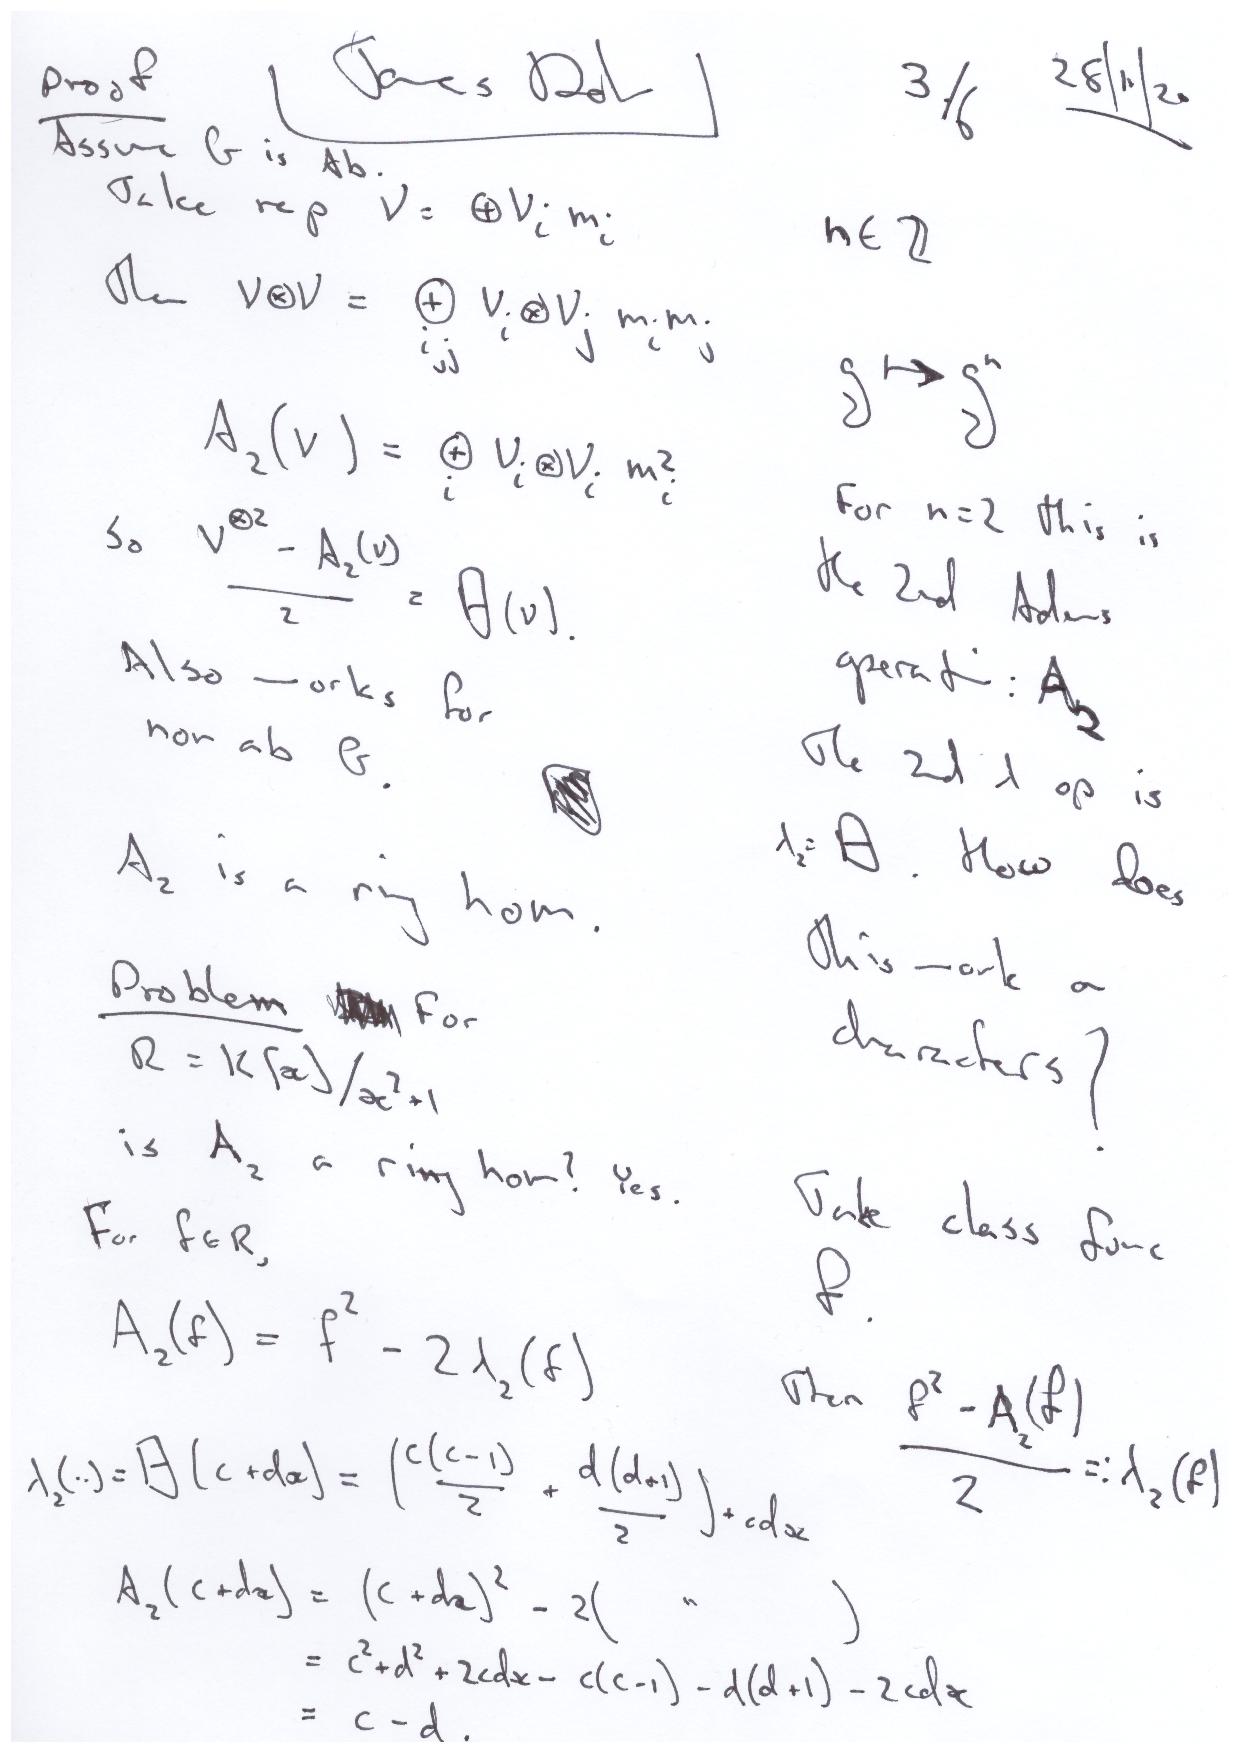 Proof
3/6
Assume G is Ab.
Take rep V = ⊕Vᵢ mᵢ
Then V⊗V = ⊕ᵢ,ⱼ Vᵢ⊗Vⱼ mᵢmⱼ
A₂(V) = ⊕ᵢ Vᵢ⊗Vᵢ mᵢ²
So (V^⊗2 - A₂(V))/2 = θ(V).
Also works for
non ab G.
A₂ is a ring hom.
Problem For
R = K[x]/x²+1
is A₂ a ring hom? Yes.
For f∈R,
A₂(f) = f² - 2λ₂(f)
λ₂(..) = θ(c+dx) = (c(c-1)/2 + d(d+1)/2) + cdx
A₂(c+dx) = (c+dx)² - 2( " )
= c²+d²+2cdx - c(c-1) - d(d+1) - 2cdx
= c - d.
n∈ℤ
g ↦ gⁿ
For n=2 this is
the 2nd Adams
operati: A₂
The 2nd λ op is
λ₂= θ. How does
this work on
characters?
Take class func
f.
Then (f² - A₂(f))/2 =: λ₂(f)